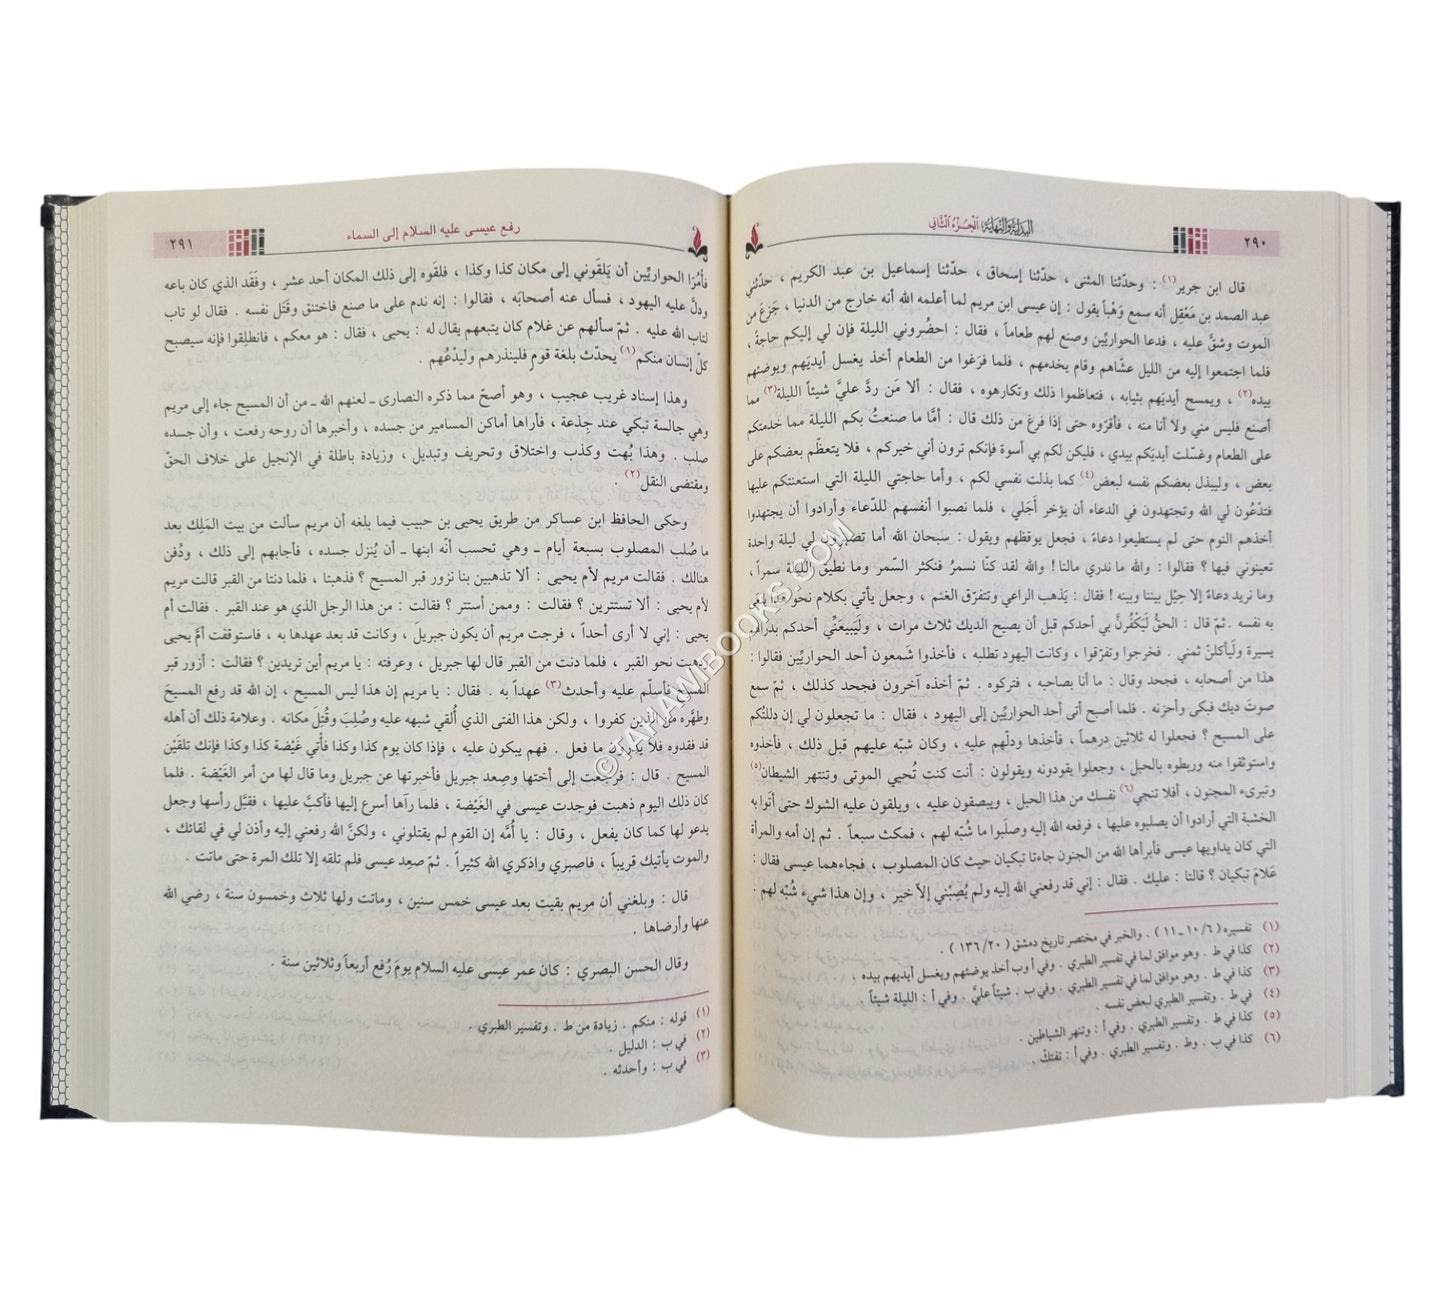 ٢٩٠
البداية والنهاية الجزء الثاني
قال ابن جرير(١) : وحدّثنا المثنى ، حدّثنا إسحاق ، حدّثنا إسماعيل بن عبد الكريم ، حدّثني
عبد الصمد بن مَعْقِل أنه سمع وَهْباً يقول : إن عيسى ابن مريم لما أعلمه الله أنه خارج من الدنيا ، جَزعَ من
الموت وشقَّ عليه ، فدعا الحواريِّين وصنع لهم طعاماً ، فقال : احضُروني الليلة فإن لي إليكم حاجةً ،
فلما اجتمعوا إليه من الليل عشّاهم وقام يخدمهم ، فلما فرَغوا من الطعام أخذ يغسل أيديَهم ويوضئهم
بيده(٢) ، ويمسح أيديَهم بثيابه ، فتعاظموا ذلك وتكارهوه ، فقال : ألا مَن ردَّ عليَّ شيئاً الليلة(٣) مما
أصنع فليس مني ولا أنا منه ، فأقرّوه حتى إذا فرغ من ذلك قال : أمَّا ما صنعتُ بكم الليلة مما خدمتكم
على الطعام وغسّلت أيديَكم بيدي ، فليكن لكم بي أسوة فإنكم ترون أني خيركم ، فلا يتعظّم بعضكم على
بعض ، وليبذل بعضكم نفسه لبعض(٤) كما بذلت نفسي لكم ، وأما حاجتي الليلة التي استعنتكم عليها
فتدْعُون لي الله وتجتهدون في الدعاء أن يؤخر أَجَلي ، فلما نصبوا أنفسهم للدّعاء وأرادوا أن يجتهدوا
أخذهم النوم حتى لم يستطيعوا دعاءً ، فجعل يوقظهم ويقول : سبحان الله أما تصبرون لي ليلة واحدة
تعينوني فيها ؟ فقالوا : والله ما ندري مالنا ! والله لقد كنّا نسمرُ فنكثر السّمر وما نطيق الليلة سمراً ،
وما نريد دعاءً إلا حِيْل بيننا وبينه ! فقال : يَذهب الراعي وتتفرّق الغنم ، وجعل يأتي بكلام نحو هذا ينعى
به نفسه . ثمّ قال : الحقُّ لَيَكْفُرنَّ بي أحدكم قبل أن يصيح الديك ثلاث مرات ، ولَيَبيعَنِّي أحدكم بدراهم
يسيرة ولَيأكلنّ ثمني . فخرجوا وتفرّقوا ، وكانت اليهود تطلبه ، فأخذوا شَمعون أحد الحواريِّين فقالوا :
هذا من أصحابه ، فجحد وقال : ما أنا بصاحبه ، فتركوه . ثمّ أخذه آخرون فجحد كذلك ، ثمّ سمع
صوتَ ديك فبكى وأحزنه . فلما أصبح أتى أحد الحواريِّين إلى اليهود ، فقال : ما تجعلون لي إن دللتُكم
على المسيح ؟ فجعلوا له ثلاثين درهماً ، فأخذها ودلّهم عليه ، وكان شبّه عليهم قبل ذلك ، فأخذوه
واستوثقوا منه وربطوه بالحبل ، وجعلوا يقودونه ويقولون : أنت كنت تُحيي الموتى وتنتهر الشيطان(٥)
وتبرىء المجنون ، أفلا تنجي(٦) نفسك من هذا الحبل ، ويبصقون عليه ، ويلقون عليه الشوك حتى أتَوا به
الخشبة التي أرادوا أن يصلبوه عليها ، فرفعه الله إليه وصلَبوا ما شُبّه لهم ، فمكث سبعاً . ثم إن أمه والمرأة
التي كان يداويها عيسى فأبرأها الله من الجنون جاءتا تبكيان حيث كان المصلوب ، فجاءهما عيسى فقال :
عَلامَ تبكيان ؟ قالتا : عليك . فقال : إني قد رفعني الله إليه ولم يُصِبْني إلاّ خير ، وإن هذا شيء شُبِّه لهم .
(١) تفسيره ( ٦/ ١٠ ـ ١١ ) . والخبر في مختصر تاريخ دمشق ( ٢٠/ ١٣٦ ) .
(٢) كذا في ط . وهو موافق لما في تفسير الطبري . وفي أ وب أخذ يوضئهم ويغسل أيديهم بيده ،
(٣) كذا في ط . وهو موافق لما في تفسير الطبري . وفي ب . شيئاً عليَّ . وفي أ : الليلة شيئاً .
(٤) في ط . وتفسير الطبري لبعض نفسه .
(٥) كذا في ط . وتفسير الطبري . وفي أ : وتنهر الشياطين .
(٦) كذا في ب . وط . وتفسير الطبري . وفي أ : تفتكّ .
رفع عيسى عليه السلام إلى السماء
٢٩١
فأمُرَا الحواريِّين أن يَلقَوني إلى مكان كذا وكذا ، فلقَوه إلى ذلك المكان أحد عشر ، وفقَد الذي كان باعه
ودلَّ عليه اليهود ، فسأل عنه أصحابَه ، فقالوا : إنه ندم على ما صنع فاختنق وقَتَل نفسه . فقال لو تاب
لتاب الله عليه . ثمّ سألهم عن غلام كان يتبعهم يقال له : يحيى ، فقال : هو معكم ، فانطلِقوا فإنه سيصبح
كلّ إنسان منكم(١) يحدّث بلغة قوم فلينذرهم وليدْعُهم .
وهذا إسناد غريب عجيب ، وهو أصحّ مما ذكره النصارى ـ لعنهم الله ـ من أن المسيح جاء إلى مريم
وهي جالسة تبكي عند جِذعة ، فأراها أماكن المسامير من جسده ، وأخبرها أن روحه رفعت ، وأن جسده
صلب . وهذا بُهت وكذب واختلاق وتحريف وتبديل ، وزيادة باطلة في الإنجيل على خلاف الحقّ
ومقتضى النقل(٢) .
وحكى الحافظ ابن عساكر من طريق يحيى بن حبيب فيما بلغه أن مريم سألت من بيت المَلِك بعد
ما صُلب المصلوب بسبعة أيام ـ وهي تحسب أنّه ابنها ـ أن يُنزل جسده ، فأجابهم إلى ذلك ، ودُفن
هنالك . فقالت مريم لأم يحيى : ألا تذهبين بنا نزور قبر المسيح ؟ فذهبتا ، فلما دنتا من القبر قالت مريم
لأم يحيى : ألا تستترين ؟ فقالت : وممن أستتر ؟ فقالت : من هذا الرجل الذي هو عند القبر . فقالت أم
يحيى : إني لا أرى أحداً ، فرجت مريم أن يكون جبريلَ ، وكانت قد بعد عهدها به ، فاستوقفت أمَّ يحيى
وذهبت نحو القبر ، فلما دنت من القبر قال لها جبريل ، وعرفته : يا مريم أين تريدين ؟ فقالت : أزور قبر
المسيح فأسلّم عليه وأحدث(٣) عهداً به . فقال : يا مريم إن هذا ليس المسيح ، إن الله قد رفع المسيحَ
وطهَّره من الذين كفروا ، ولكن هذا الفتى الذي أُلقي شبهه عليه وصُلبَ وقُتِلَ مكانه . وعلامة ذلك أن أهله
قد فقدوه فلا يدرون ما فعل . فهم يبكون عليه ، فإذا كان يوم كذا وكذا فأْتي غَيْضة كذا وكذا فإنك تلقَيْن
المسيح . قال : فرجعت إلى أختها وصِعد جبريل فأخبرتها عن جبريل وما قال لها من أمر الغَيْضة . فلما
كان ذلك اليوم ذهبت فوجدت عيسى في الغَيْضة ، فلما رآها أسرع إليها فأكبَّ عليها ، فقبَّل رأسها وجعل
يدعو لها كما كان يفعل ، وقال : يا أُمَّه إن القوم لم يقتلوني ، ولكنَّ الله رفعني إليه وأذن لي في لقائك ،
والموت يأتيك قريباً ، فاصبري واذكري الله كثيراً . ثمّ صعِد عيسى فلم تلقه إلا تلك المرة حتى ماتت .
قال : وبلغني أن مريم بقيت بعد عيسى خمس سنين ، وماتت ولها ثلاث وخمسون سنة ، رضي الله
عنها وأرضاها .
وقال الحسن البصري : كان عمر عيسى عليه السلام يومَ رُفع أربعاً وثلاثين سنة .
(١) قوله : منكم . زيادة من ط . وتفسير الطبري .
(٢) في ب : الدليل .
(٣) في ب : وأحدثه .
©TAHAWIBOOKS.COM